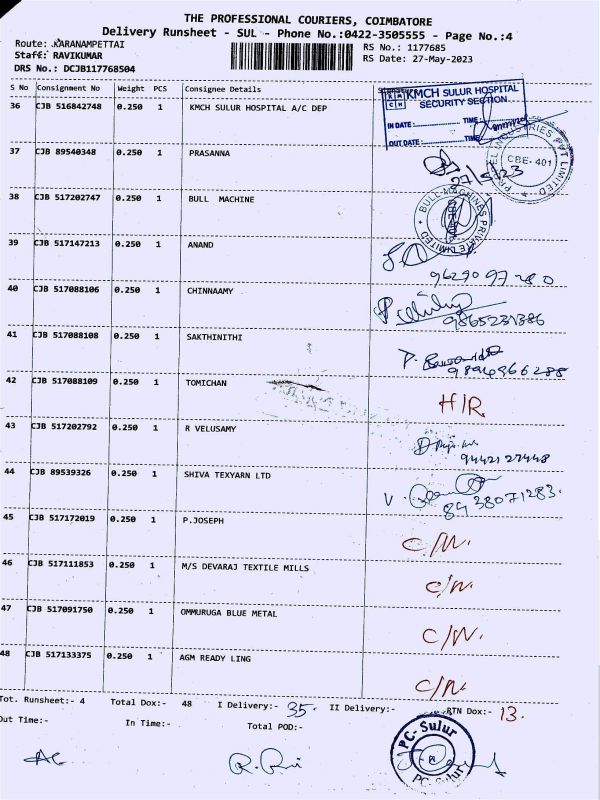 THE PROFESSIONAL COURIERS, COIMBATORE
Delivery Runsheet - SUL - Phone No.:0422-3505555 - Page No.:4
Route: KARANAMPETTAI
RS No.: 1177685
Staff: RAVIKUMAR
RS Date: 27-May-2023
DRS No.: DCJB117768504
S No Consignment No Weight PCS Consignee Details
36 CJB 516842748 0.250 1 KMCH SULUR HOSPITAL A/C DEP
KMCH SULUR HOSPITAL
SECURITY SECTION
IN DATE: TIME:
OUT DATE: TIME:
37 CJB 89540348 0.250 1 PRASANNA
CBE- 401
27/5/23
38 CJB 517202747 0.250 1 BULL MACHINE
BULL MACHINES PRIVATE LIMITED
39 CJB 517147213 0.250 1 ANAND
9629097280
40 CJB 517088106 0.250 1 CHINNAAMY
9865231386
41 CJB 517088108 0.250 1 SAKTHINITHI
9894966288
42 CJB 517088109 0.250 1 TOMICHAN
H/R.
43 CJB 517202792 0.250 1 R VELUSAMY
9442127448
44 CJB 89539326 0.250 1 SHIVA TEXYARN LTD
8438071283.
45 CJB 517172019 0.250 1 P.JOSEPH
C/N.
46 CJB 517111853 0.250 1 M/S DEVARAJ TEXTILE MILLS
C/N.
47 CJB 517091750 0.250 1 OMMURUGA BLUE METAL
C/N.
48 CJB 517133375 0.250 1 AGM READY LING
C/N.
Tot. Runsheet:- 4 Total Dox:- 48 I Delivery:- 35. II Delivery:- RTN Dox:- 13.
Out Time:- In Time:- Total POD:-
PC- Sulur
PC- Sulur